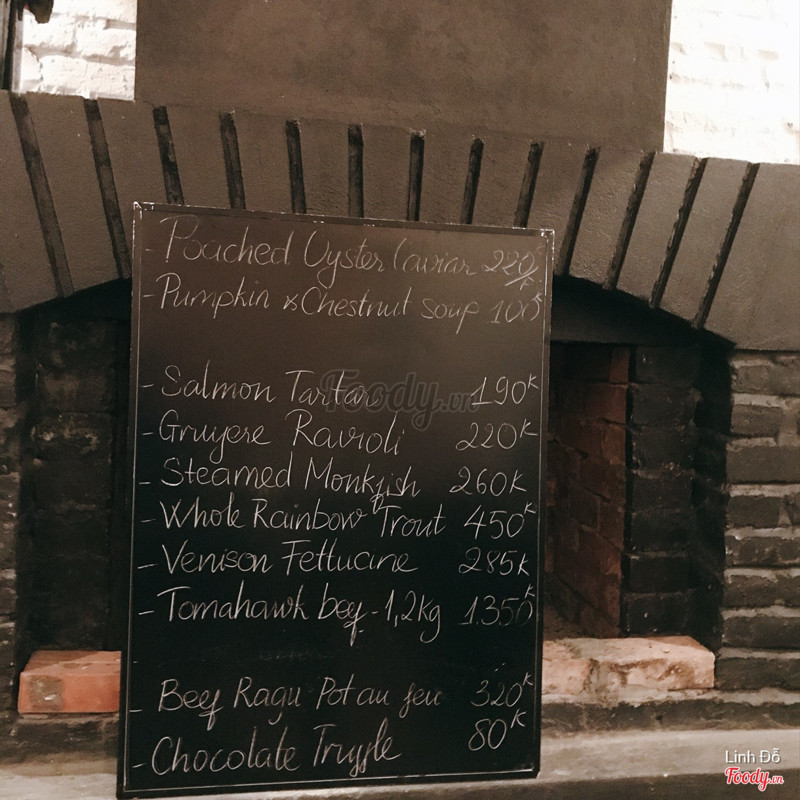 - Poached Oyster Caviar 220K
- Pumpkin & Chestnut soup 100K
- Salmon Tartar 190K
- Gruyere Ravioli 220K
- Steamed Monkfish 260K
- Whole Rainbow Trout 450K
- Venison Fettucine 285K
- Tomahawk beef - 1,2kg 1.350K
- Beef Ragu Pot au feu 320K
- Chocolate Truffle 80K
Foody.vn
Linh Đỗ
Foody.vn